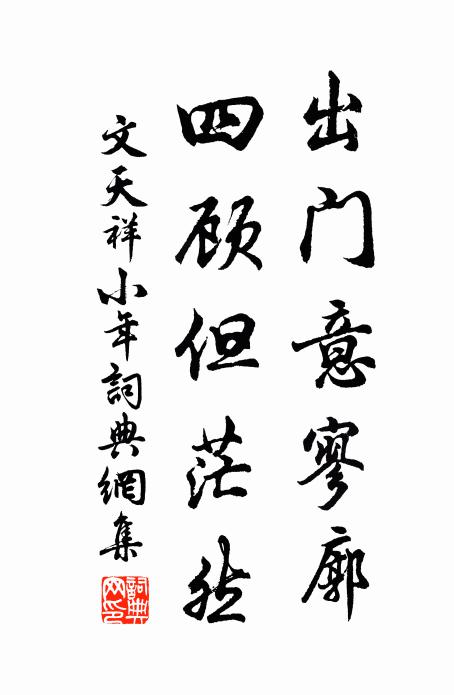 出门意寥廓
四顾但茫然
文天祥小年詞典網集
詞典網印